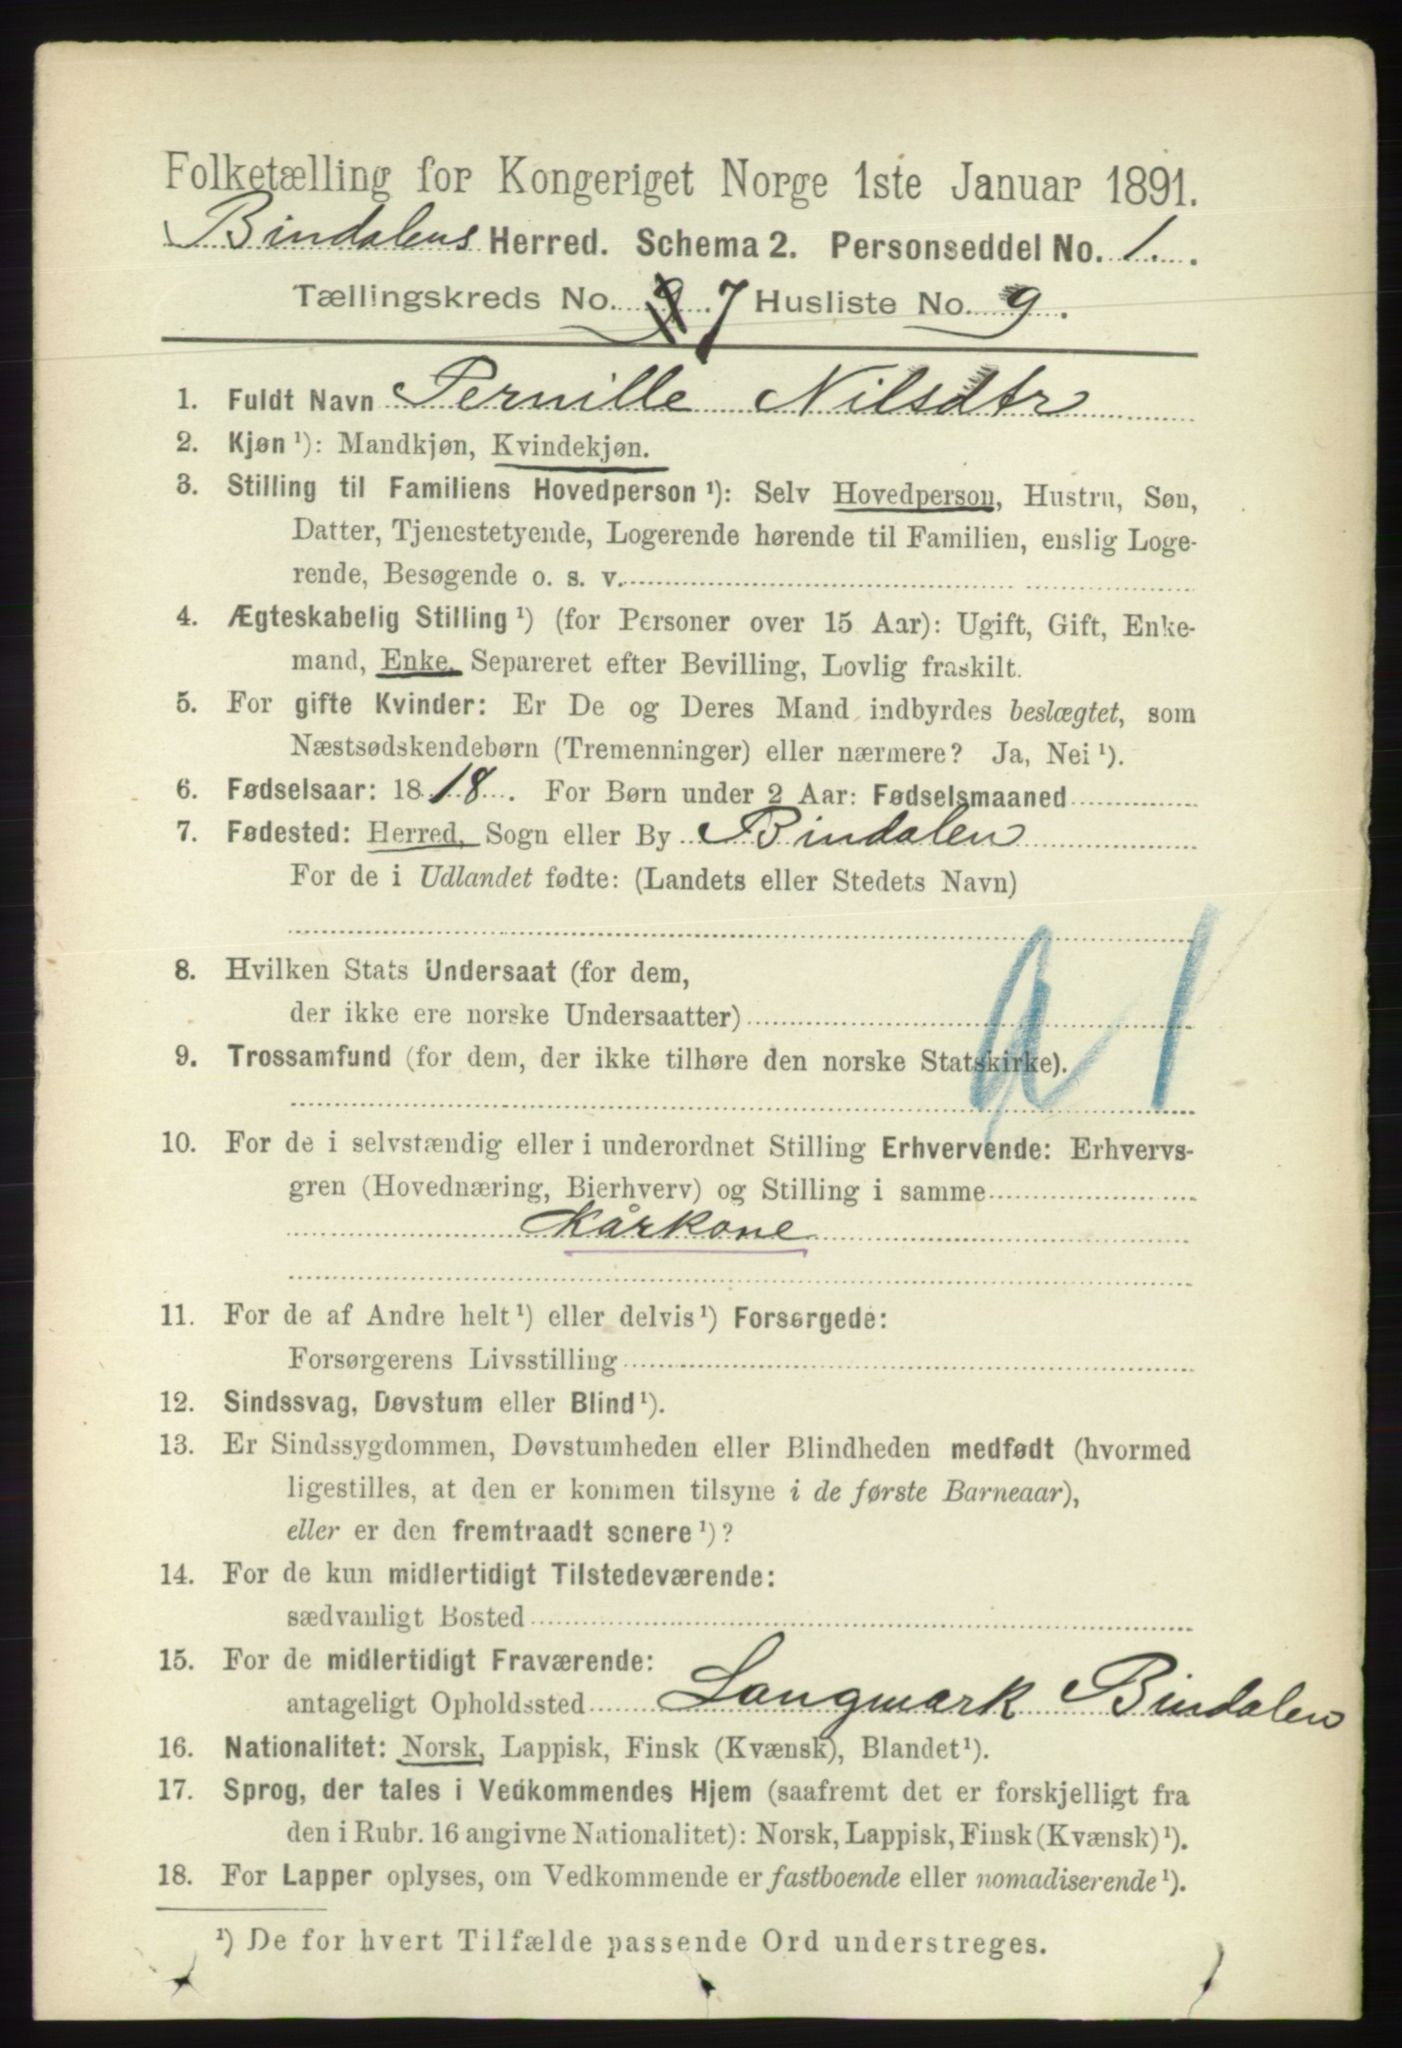 Folketælling for Kongeriget Norge 1ste Januar 1891.
Bindalens Herred. Schema 2. Personseddel No. 1.
Tællingskreds No. 9 7 Husliste No. 9.
1. Fuldt Navn Pernille Nilsdtr
2. Kjøn ¹): Mandkjøn, Kvindekjøn.
3. Stilling til Familiens Hovedperson ¹): Selv Hovedperson, Hustru, Søn,
Datter, Tjenestetyende, Logerende hørende til Familien, enslig Loge-
rende, Besøgende o. s. v.
4. Ægteskabelig Stilling ¹) (for Personer over 15 Aar): Ugift, Gift, Enke-
mand, Enke, Separeret efter Bevilling, Lovlig fraskilt.
5. For gifte Kvinder: Er De og Deres Mand indbyrdes beslægtet, som
Næstsødskendebørn (Tremenninger) eller nærmere? Ja, Nei ¹).
6. Fødselsaar: 1818. For Børn under 2 Aar: Fødselsmaaned
7. Fødested: Herred, Sogn eller By Bindalen
For de i Udlandet fødte: (Landets eller Stedets Navn)
8. Hvilken Stats Undersaat (for dem,
der ikke ere norske Undersaatter)
9. Trossamfund (for dem, der ikke tilhøre den norske Statskirke).
10. For de i selvstændig eller i underordnet Stilling Erhvervende: Erhvervs-
gren (Hovednæring, Bierhverv) og Stilling i samme
Kårkone
11. For de af Andre helt ¹) eller delvis ¹) Forsørgede:
Forsørgerens Livsstilling
12. Sindssvag, Døvstum eller Blind ¹).
13. Er Sindssygdommen, Døvstumheden eller Blindheden medfødt (hvormed
ligestilles, at den er kommen tilsyne i de første Barneaar),
eller er den fremtraadt senere ¹)?
14. For de kun midlertidigt Tilstedeværende:
sædvanligt Bosted
15. For de midlertidigt Fraværende:
antageligt Opholdssted Langmark Bindalen
16. Nationalitet: Norsk, Lappisk, Finsk (Kvænsk), Blandet ¹).
17. Sprog, der tales i Vedkommendes Hjem (saafremt det er forskjelligt fra
den i Rubr. 16 angivne Nationalitet): Norsk, Lappisk, Finsk (Kvænsk) ¹).
18. For Lapper oplyses, om Vedkommende er fastboende eller nomadiserende ¹).
¹) De for hvert Tilfælde passende Ord understreges.